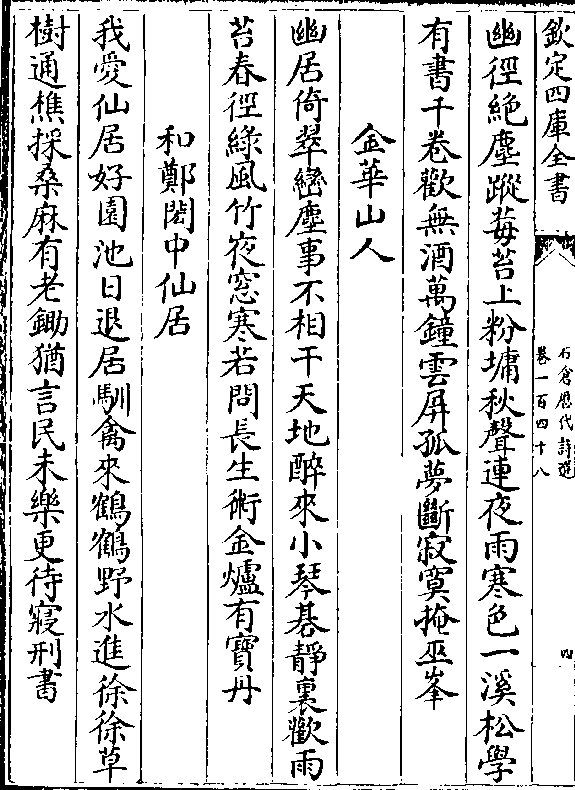 欽定四庫全書
石倉歷代詩選
卷一百四十八
四
幽徑絶塵蹤莓苔上粉墉秋聲連夜雨寒色一溪松學
有書千卷歡無酒萬鐘雲屏孤夢斷寂寞掩巫峯
金華山人
幽居倚翠巒塵事不相干天地醉來小琴棊靜裏歡雨
苔春徑綠風竹夜窓寒若問長生術金爐有寳丹
和鄭閎中仙居
我愛仙居好園池日退居馴禽來鶴鶴野水進徐徐草
樹通樵採桑麻有老鋤猶言民未樂更待寢刑書